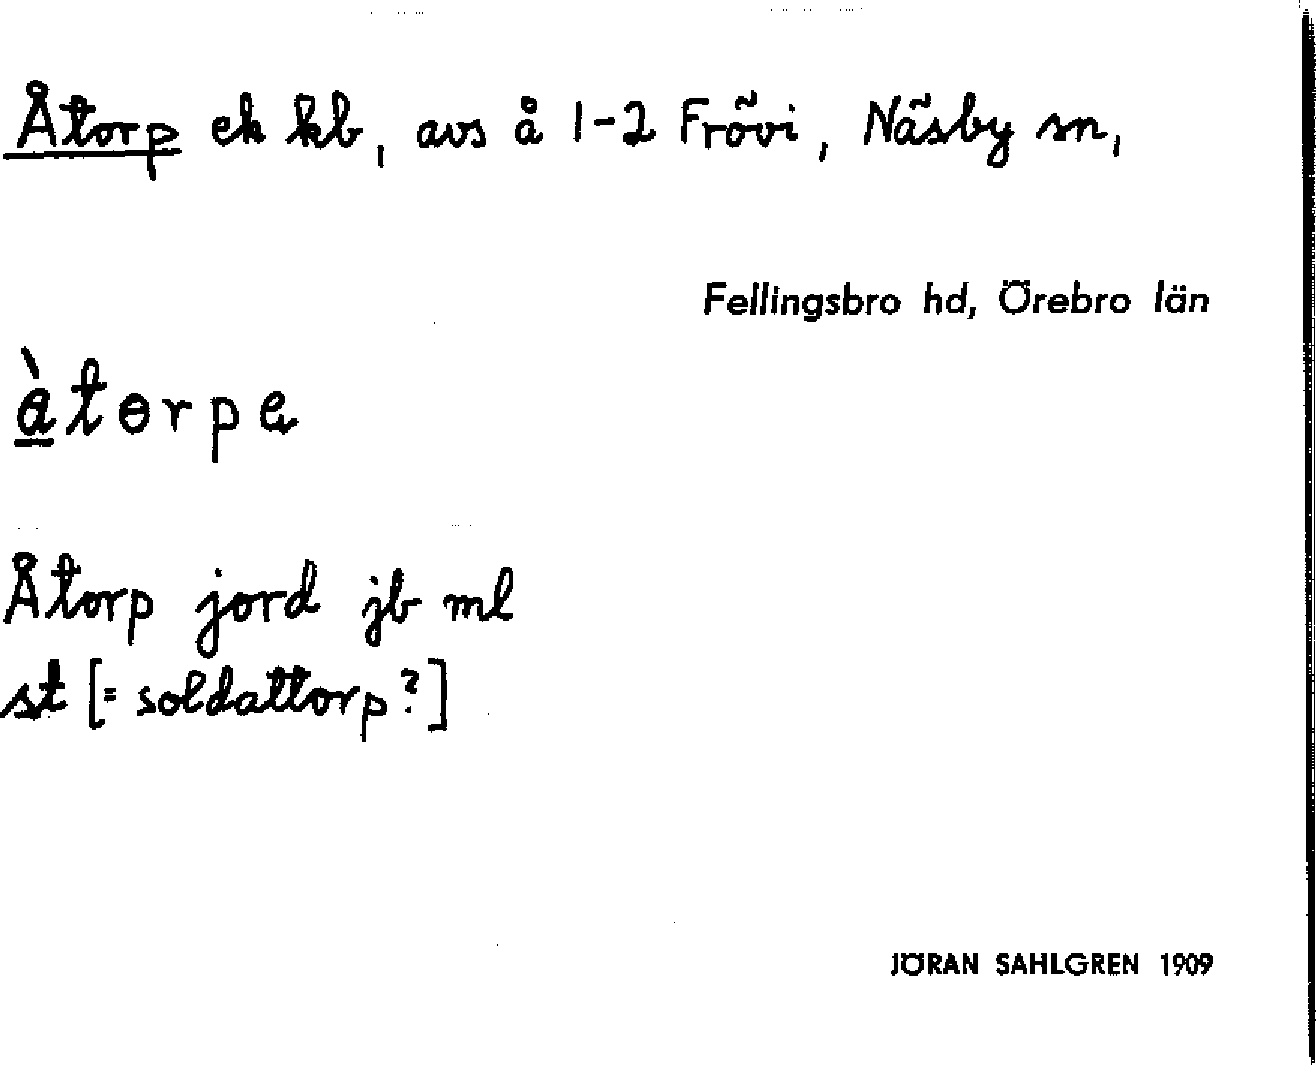 Åtorp ek kb, avs å 1-2 Frövi, Näsby sn,
Fellingsbro hd, Örebro län
àtɵrpa
Åtorp jord jb ml
st [= soldattorp?]
JÖRAN SAHLGREN 1909